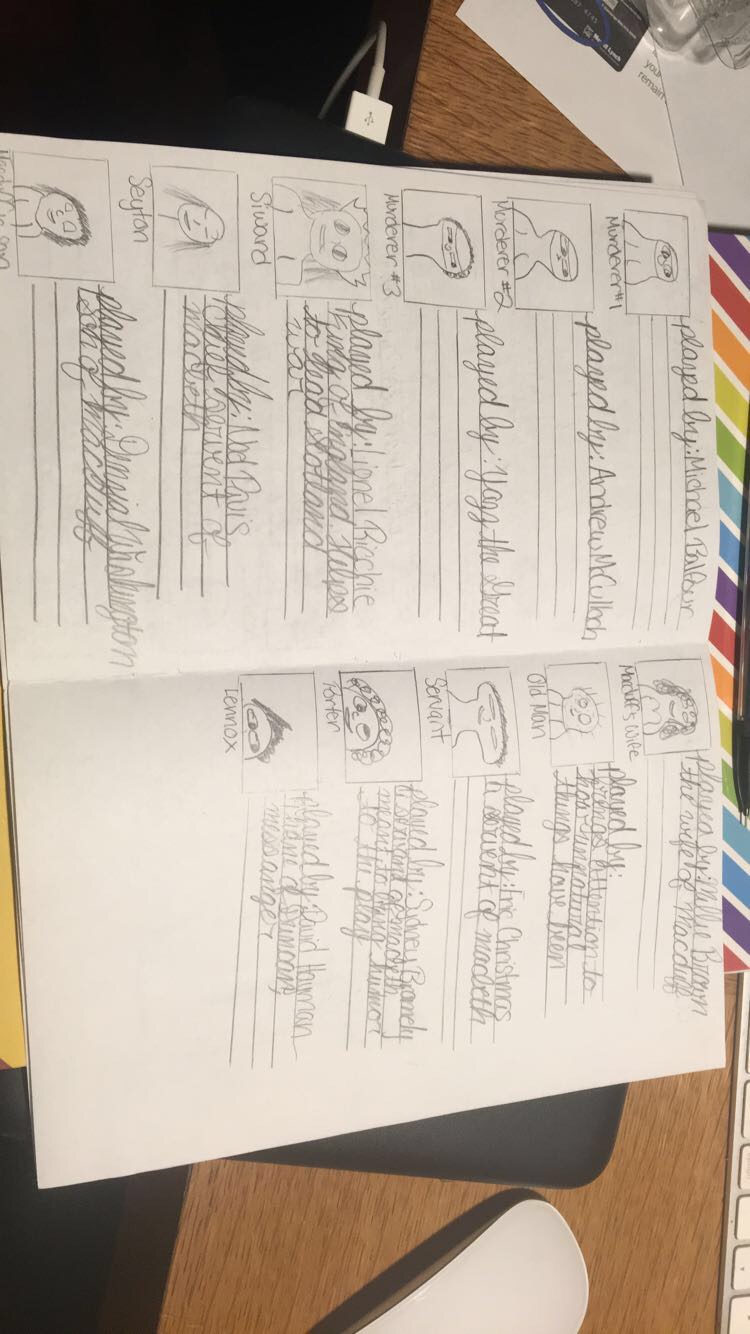 Murderer #1
played by: Michael Balfour
Murderer #2
played by: Andrew McCulloch
Murderer #3
played by: Yogg the Great
Siward
played by: Lionel Ricchie
King of England helps
to lead Scotland
war
Seyton
played by: Ned Davis
Chief servent of
macbeth
played by: Denzial Washington
son of macduff
Macduff's Wife
played by: Millie Brown
the wife of Macduff
Old Man
played by:
brings attention to
how unnatural
things have been
Servant
played by: Eric Christmas
a servent of macbeth
Porter
played by: Sidney Bromely
a servant of macbeth
meant to bring humor
to the play
Lennox
played by: David Hayman
thane of Duncans
messanger
your
remain